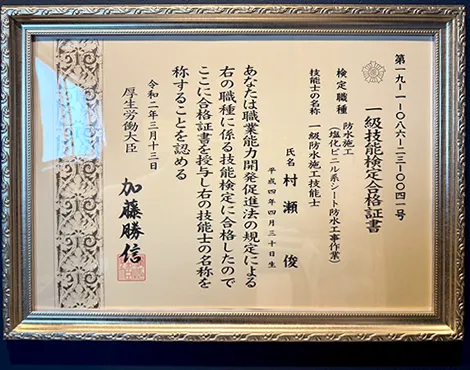 第一九-一-〇八六-二三-〇〇四一号
一級技能検定合格証書
検定職種 防水施工
(塩化ビニル系シート防水工事作業)
技能士の名称 一級防水施工技能士
氏名 村瀬 俊
平成四年四月三十日生
あなたは職業能力開発促進法の規定による
右の職種に係る技能検定に合格したので
ここに合格証書を授与し右の技能士の名称を
称することを認める
令和二年三月十三日
厚生労働大臣 加藤勝信